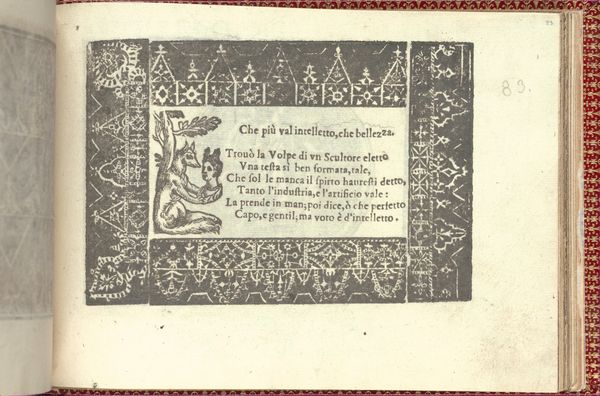 Che più val intelletto, che bellezza.
Trouò la Volpe di vn Scultore eletto
Vna testa sì ben formata, tale,
Che sol le manca il spirto hauresti detto,
Tanto l'industria, e l'artificio vale:
La prende in man; poi dice, ò che perfetto
Capo, e gentil; ma voto è d'intelletto.
83.